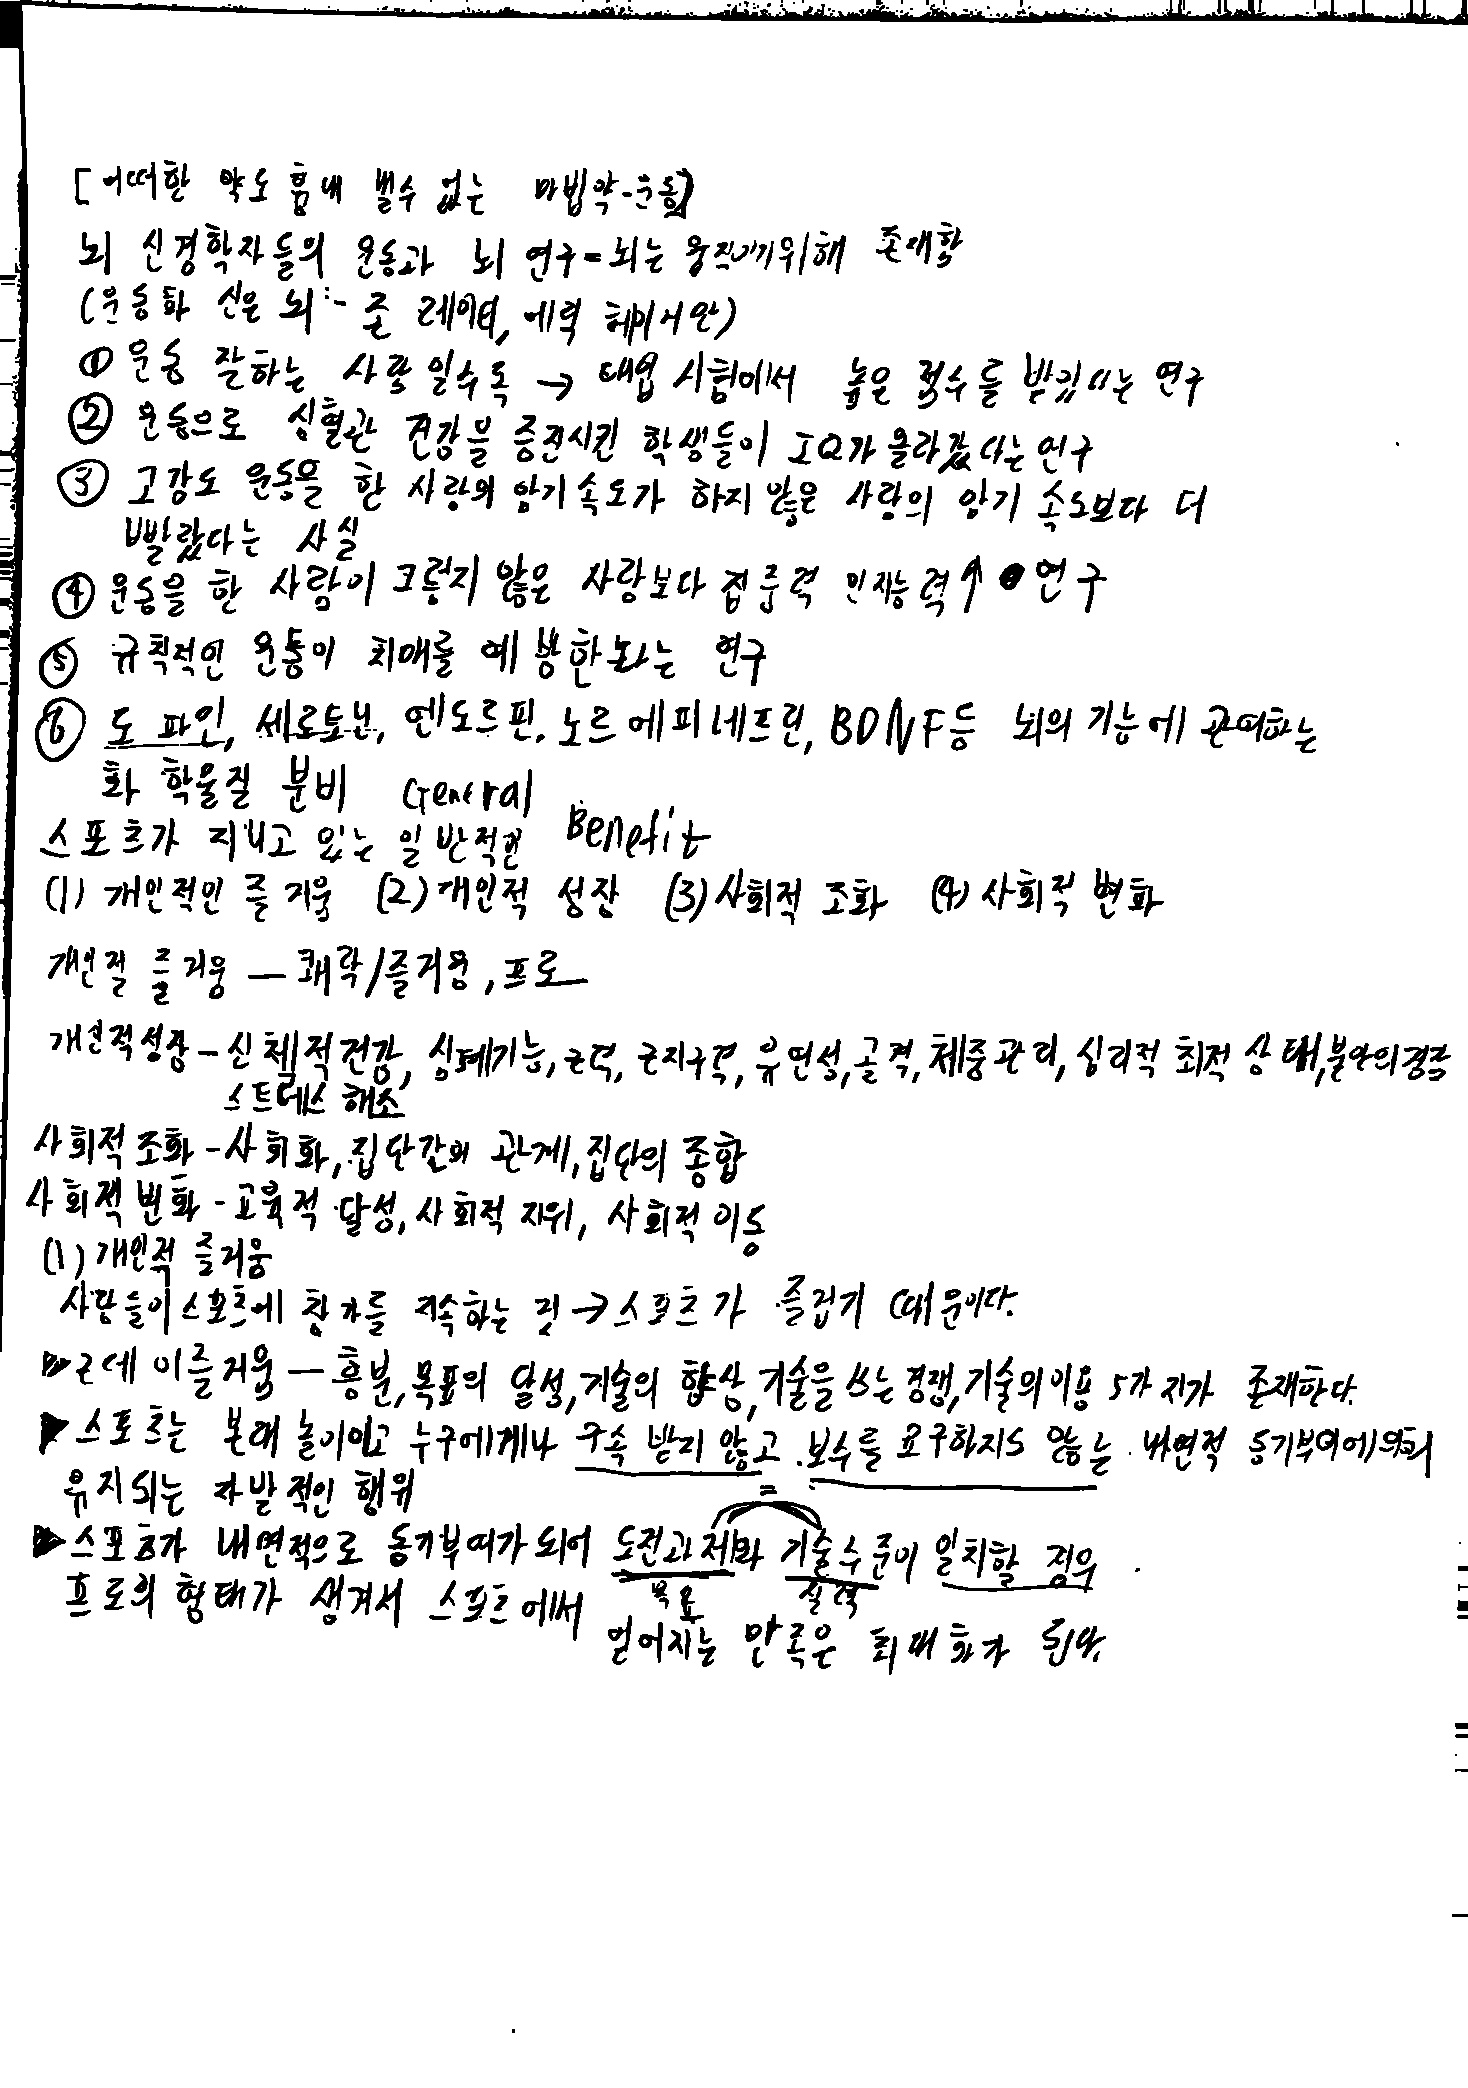 [어떠한 약도 흉내 낼수 없는 마법약-운동]
뇌 신경학자들의 운동과 뇌 연구=뇌는 움직이기위해 존재함
(운동화 신은 뇌:- 존 레이티, 에릭 헤이거만)
① 운동 잘하는 사람일수록 → 대입 시험에서 높은 점수를 받았다는 연구
② 운동으로 심혈관 건강을 증진시킨 학생들이 IQ가 올라갔다는 연구
③ 고강도 운동을 한 사람의 암기속도가 하지 않은 사람의 암기 속도보다 더
빨랐다는 사실
④ 운동을 한 사람이 그렇지 않은 사람보다 집중력 인지능력↑ 연구
⑤ 규칙적인 운동이 치매를 예방한다는 연구
⑥ 도파민, 세로토닌, 엔도르핀, 노르에피네프린, BDNF등 뇌의 기능에 관여하는
화학물질 분비 General
스포츠가 지니고 있는 일반적인 Benefit
(1) 개인적인 즐거움 (2) 개인적 성장 (3) 사회적 조화 (4) 사회적 변화
개인적 즐거움 — 쾌락/즐거움, 프로
개인적성장 - 신체적건강, 심폐기능, 근력, 근지구력, 유연성, 골격, 체중관리, 심리적 최적 상태, 불안의경감
스트레스 해소
사회적 조화 - 사회화, 집단간의 관계, 집단의 종합
사회적 변화 - 교육적 달성, 사회적 지위, 사회적 이동
(1) 개인적 즐거움
사람들이 스포츠에 참가를 지속하는 것 → 스포츠가 즐겁기 때문이다.
▷ 근데 이즐거움 — 흥분, 목표의 달성, 기술의 향상, 기술을 쓰는 경쟁, 기술의이용 5가지가 존재한다.
▶ 스포츠는 본래 놀이이고 누구에게나 구속 받지 않고 보수를 요구하지도 않는 내면적 동기부여에의해
유지되는 자발적인 행위
▶ 스포츠가 내면적으로 동기부여가 되어 도전과제와 기술수준이 일치할 경우
=
목표 실력
프로의 형태가 생겨서 스포츠에서 얻어지는 만족은 최대화가 된다.